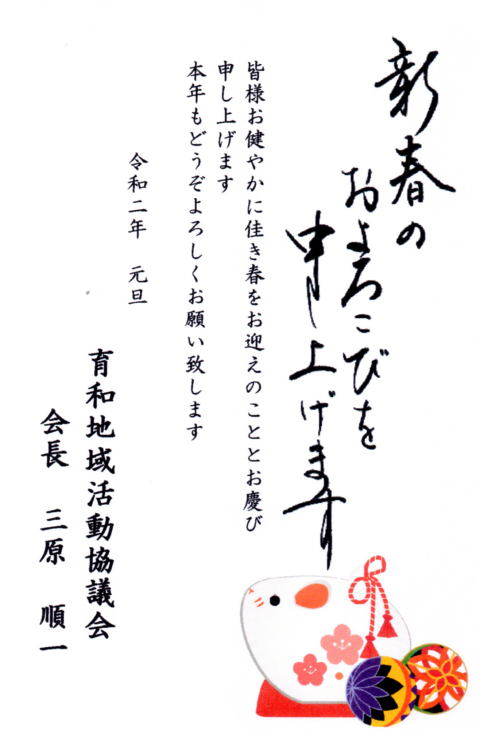 新春の
およろこびを
申し上げます
皆様お健やかに佳き春をお迎えのこととお慶び
申し上げます
本年もどうぞよろしくお願い致します
令和二年　元旦
育和地域活動協議会
会長　三原　順一